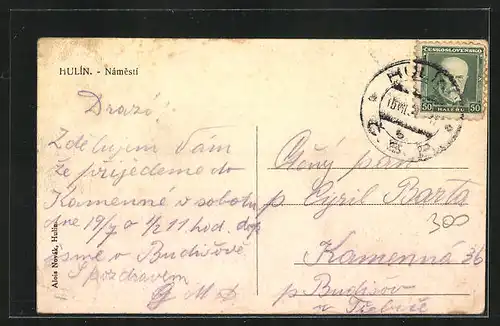 HULÍN. - Náměstí
ČESKOSLOVENSKO
50 50
HALÉŘŮ
Drazí!
Zdělujem Vám
že přijedeme do
Kamenné v sobotu
dne 19/7 o 1/2 11 hod. dop
jsme v Budišově
S pozdravem
Alois Novák, Hulín.
pan
p Cyril Barta
300
Kamenná 36
p Budišov
u Třebíče